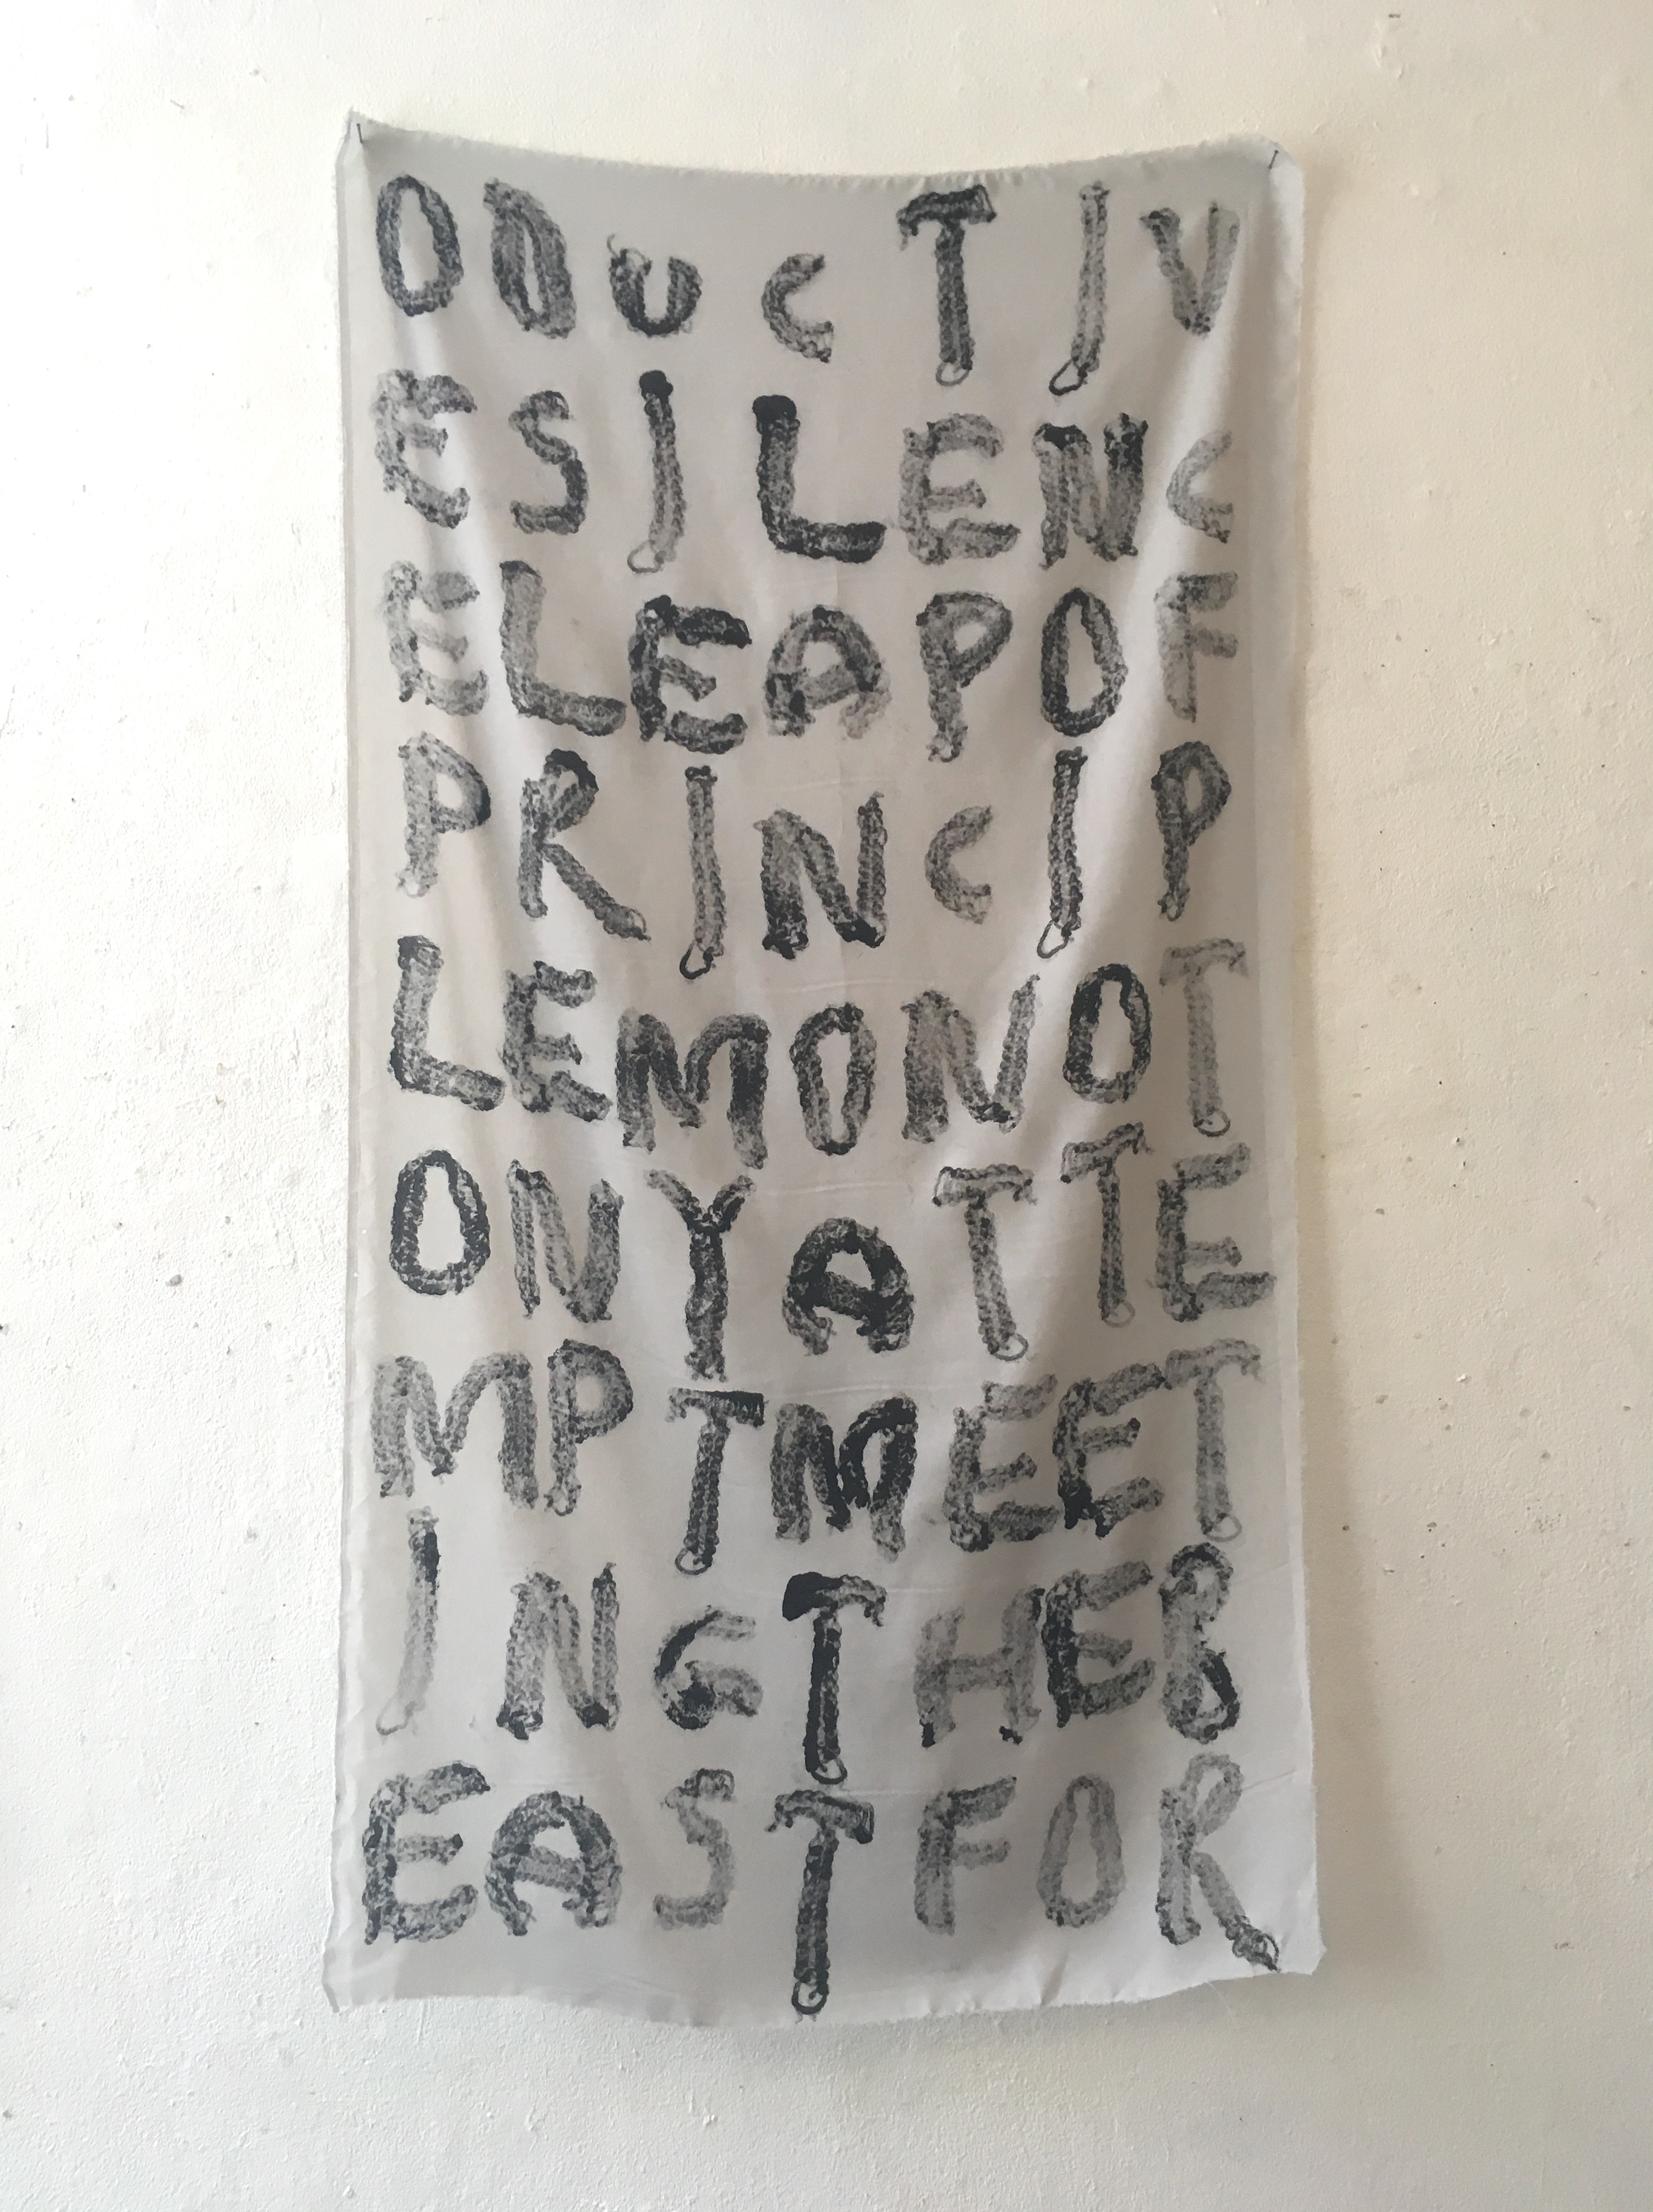 ODUCTIV
ESILENC
ELEAPOF
PRINCIP
LEMONOT
ONYATTE
MPTMEET
INGTHEB
EASTFOR